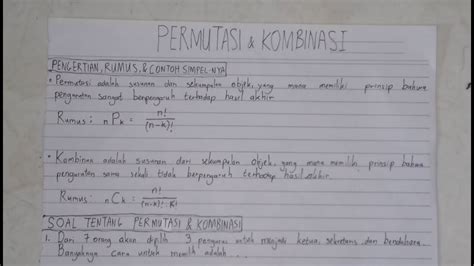 PERMUTASI & KOMBINASI
PENGERTIAN, RUMUS, & CONTOH SIMPEL-NYA
• Permutasi adalah susunan dari sekumpulan objek, yang mana memiliki prinsip bahwa
pengurutan sangat berpengaruh terhadap hasil akhir
Rumus : nPk = n! / (n-k)!
• Kombinasi adalah susunan dari sekumpulan objek, yang mana memiliki prinsip bahwa
pengurutan sama sekali tidak berpengaruh terhadap hasil akhir.
Rumus : nCk = n! / (n-k)! . k!
SOAL TENTANG PERMUTASI & KOMBINASI
1. Dari 7 orang akan dipilih 3 pengurus untuk menjadi ketua, sekretaris, dan bendahara.
Banyaknya cara untuk memilih adalah ...